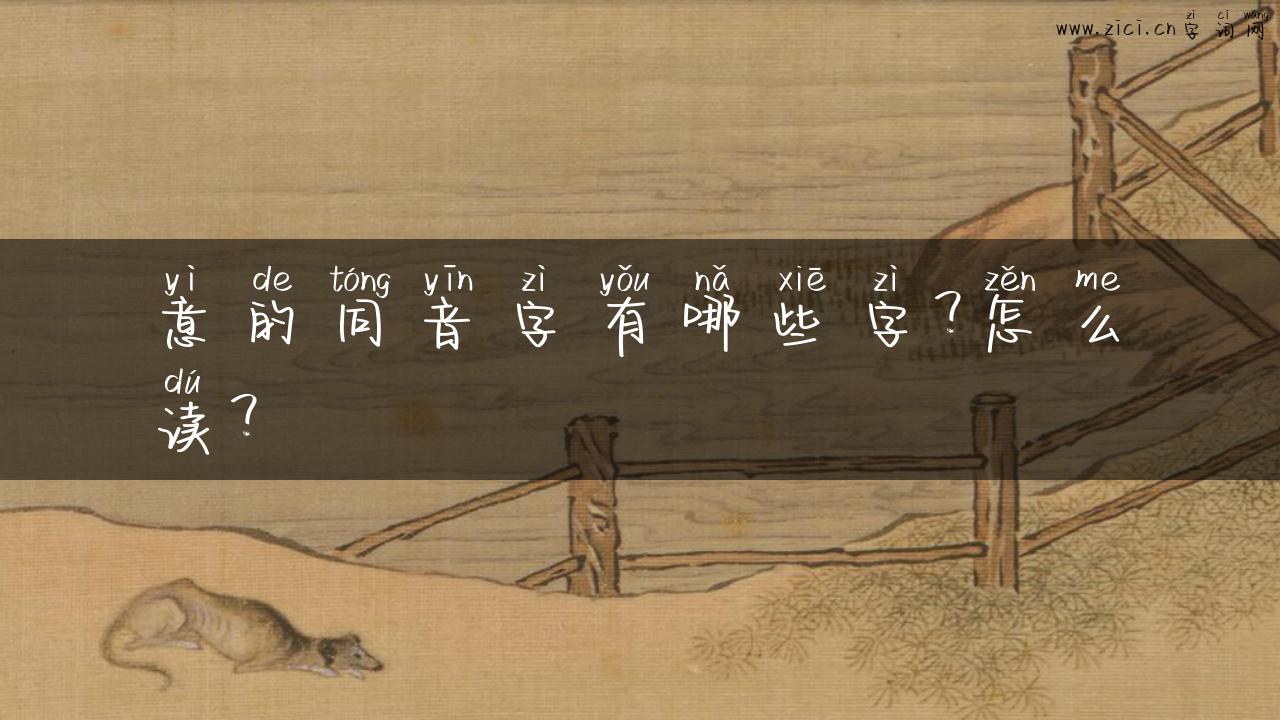 zì cí wǎng
www.zici.cn 字词网
yì de tóng yīn zì yǒu nǎ xiē zì zěn me
意的同音字有哪些字？怎么
dú
读？